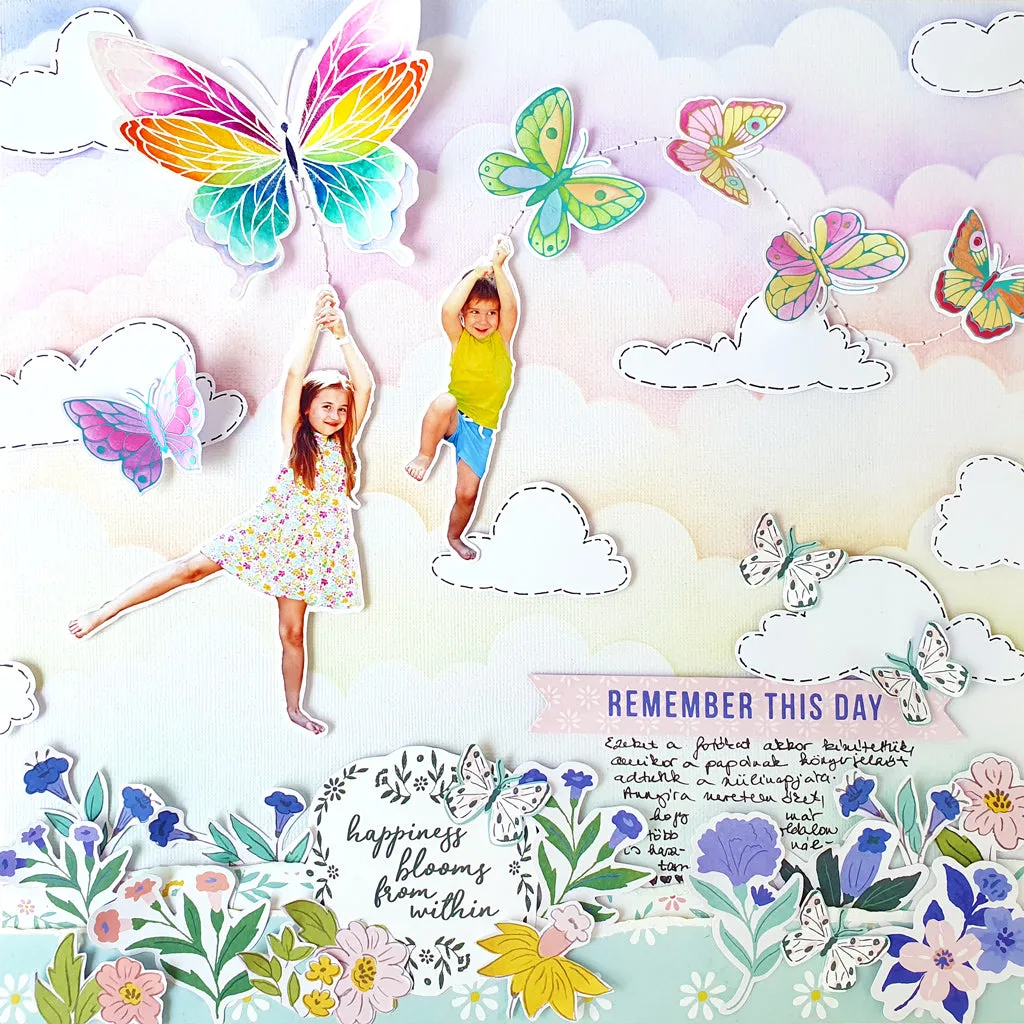 REMEMBER THIS DAY
Ezeket a fotókat akkor készítettük,
amikor a papának könyvjelzőt
adtunk a szülinapjára.
Annyira szeretem őket,
hogy már
több oldalon
is hasz- nál-
tam
happiness
blooms
from
within